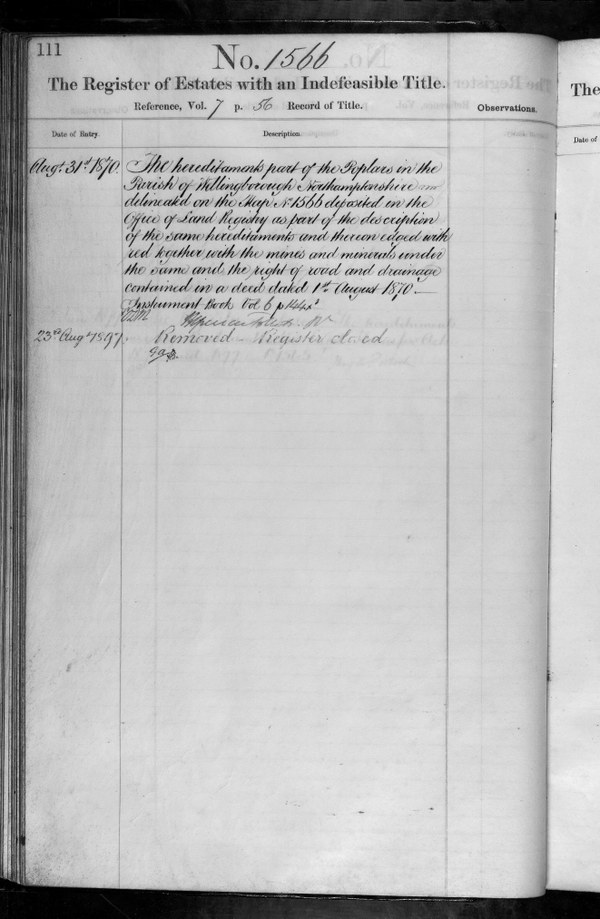 111
No. 1566
The Register of Estates with an Indefeasible Title.
Reference, Vol. 7 p. 56 Record of Title.
Observations.
Date of Entry.
Description.
Augt 31st 1870.
The hereditaments part of the Poplars in the
Parish of Wellingborough Northamptonshire
delineated on the Map No 1566 deposited in the
Office of Land Registry as part of the description
of the same hereditaments and thereon edged with
red together with the mines and minerals under
the same and the right of road and drainage
contained in a deed dated 1st August 1870.—
Instrument Book Vol 6 p
23rd Augt 1897.
Removed - Register closed
The
Date of